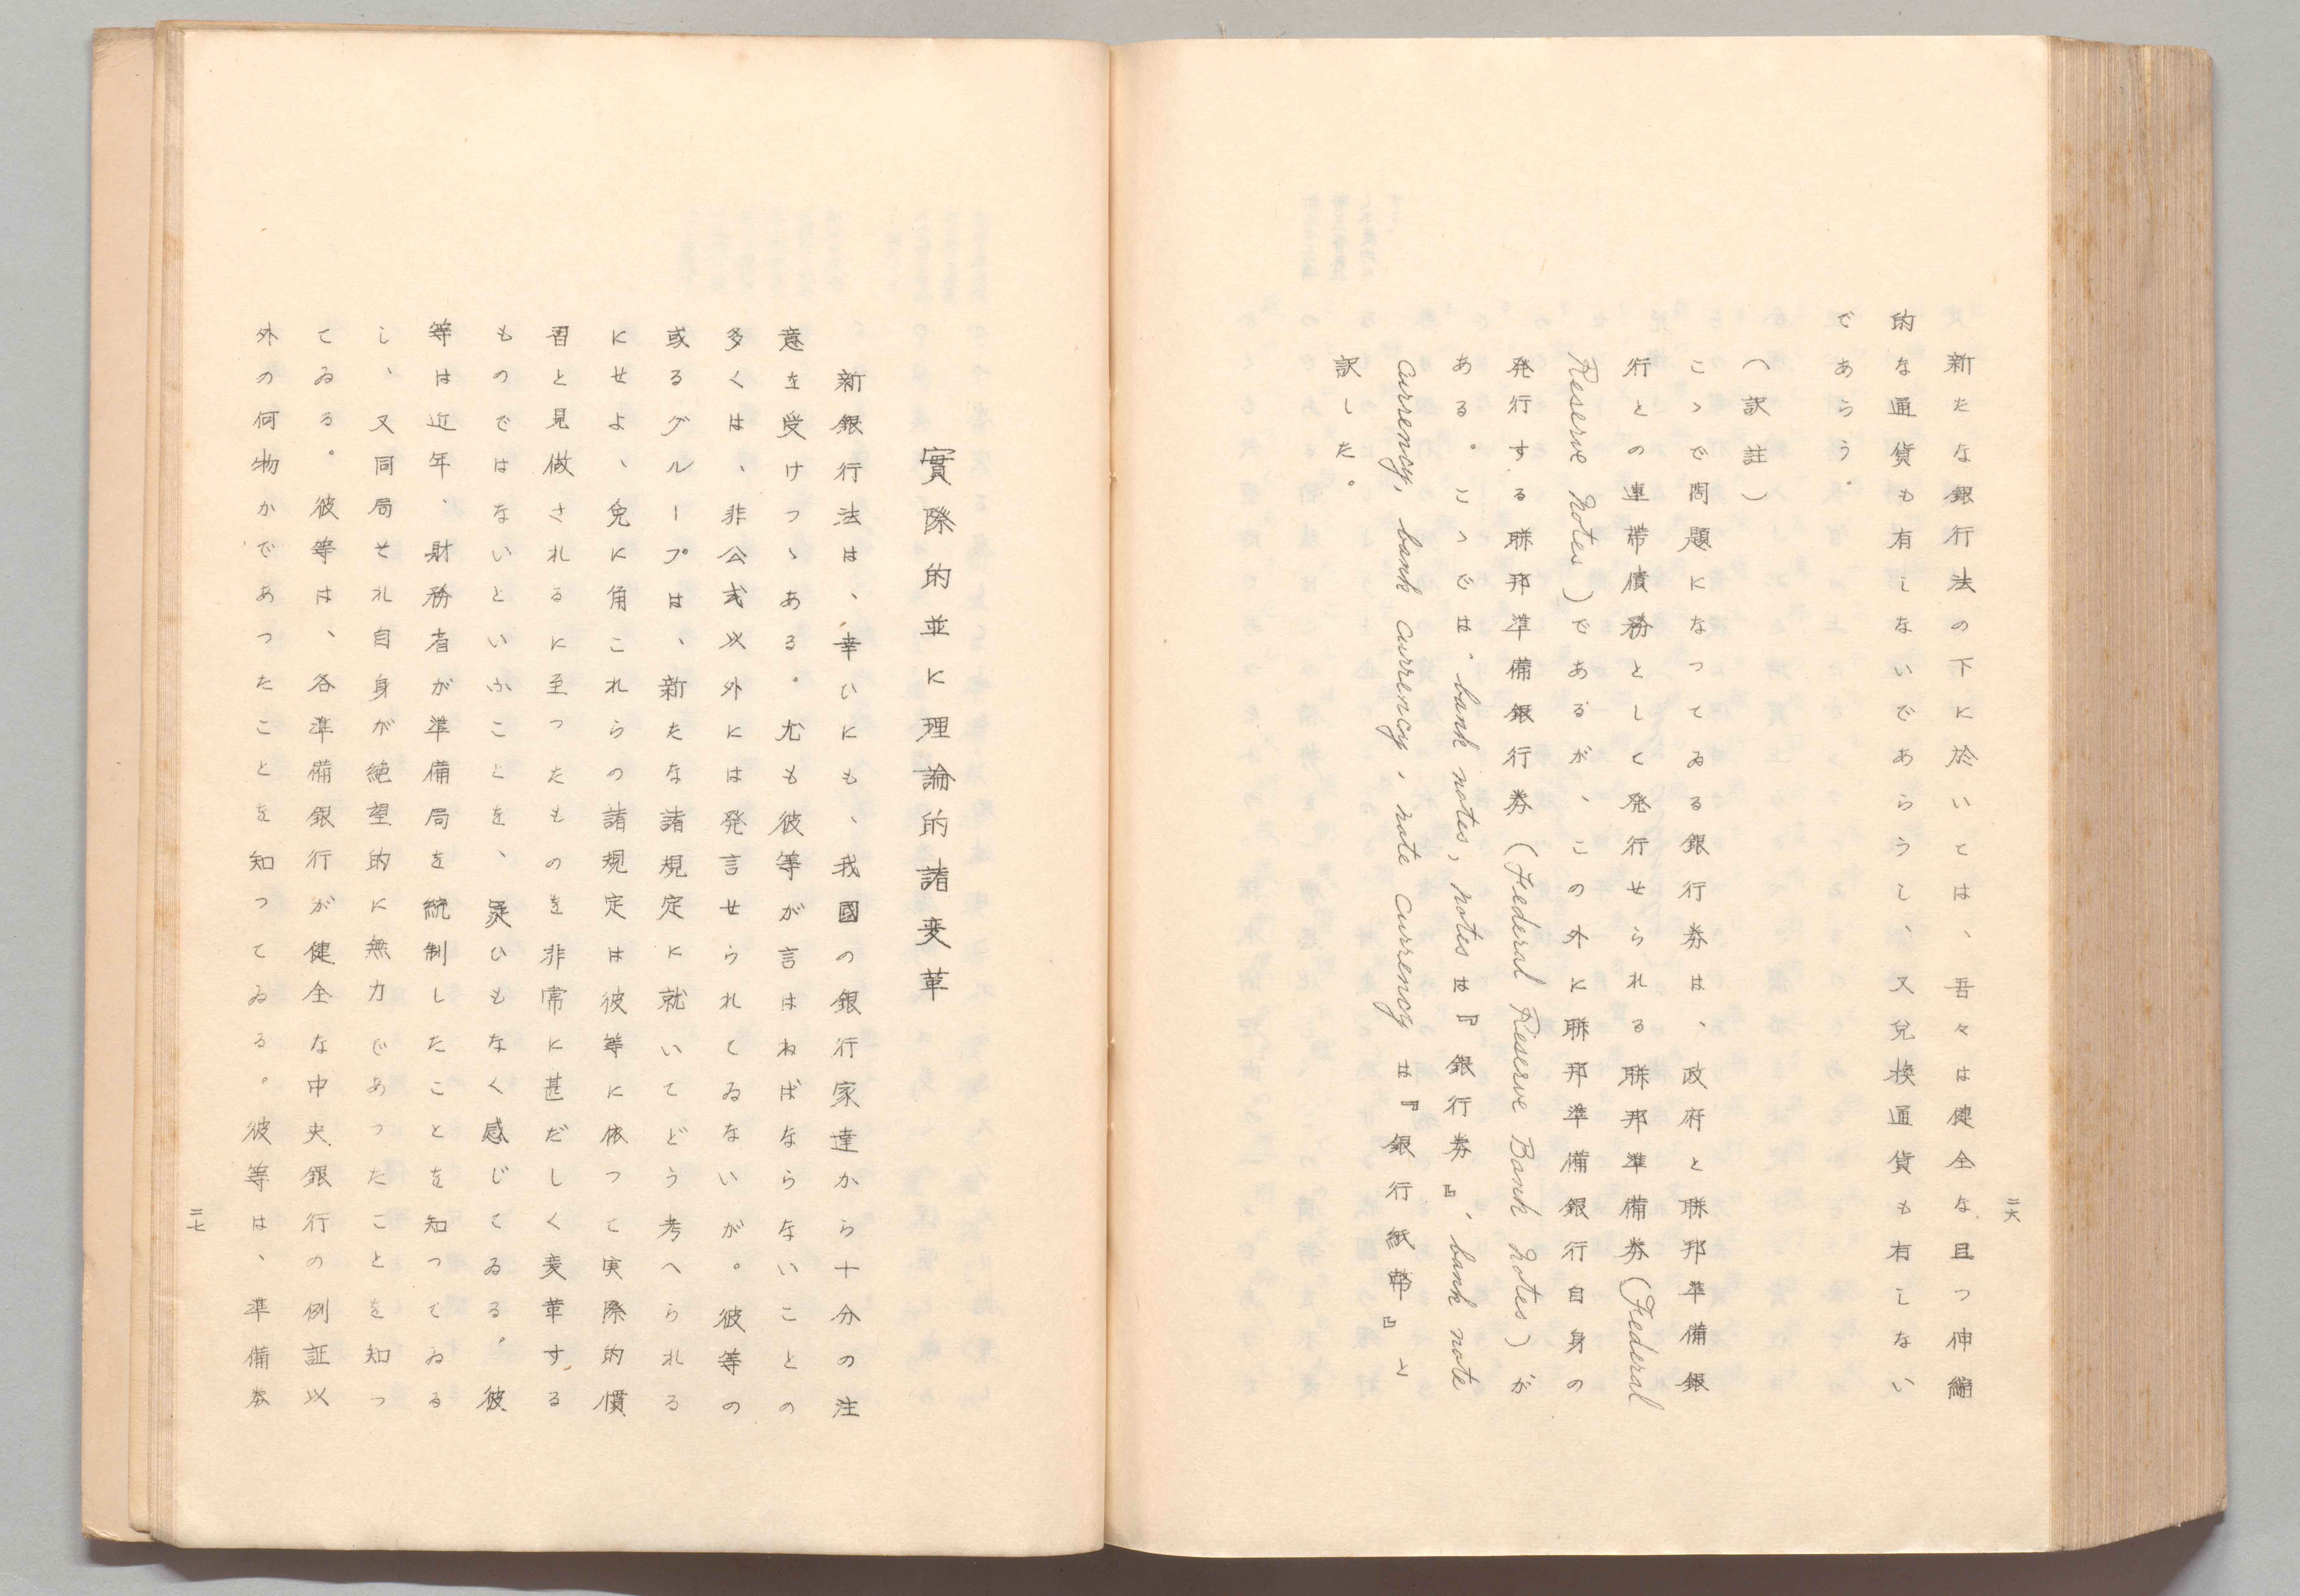 二六
新たな銀行法の下に於いては、吾々は健全な且つ伸縮
的な通貨も有しないであらうし、又兌換通貨も有しない
であらう。
（訳註）
こゝで問題になってゐる銀行券は、政府と聯邦準備銀
行との連帯債務として発行せられる聯邦準備券(Federal
Reserve Notes)であるが、この外に聯邦準備銀行自身の
発行する聯邦準備銀行券(Federal Reserve Bank Notes)が
ある。こゝでは、bank notes, notesは『銀行券』、bank note
currency, bank currency, note currencyは『銀行紙幣』と
訳した。
實際的並に理論的諸変革
新銀行法は、幸ひにも、我國の銀行家達から十分の注
意を受けつゝある。尤も彼等が言はねばならないことの
多くは、非公式以外には発言せられてゐないが。彼等の
或るグループは、新たな諸規定に就いてどう考へられる
にせよ、兔に角これらの諸規定は彼等に依って実際的慣
習と見做されるに至ったものを非常に甚だしく変革する
ものではないといふことを、疑ひもなく感じてゐる。彼
等は近年、財務省が準備局を統制したことを知ってゐる
し、又同局それ自身が絶望的に無力であったことを知っ
てゐる。彼等は、各準備銀行が健全な中央銀行の例証以
外の何物かであったことを知ってゐる。彼等は、準備券
二七